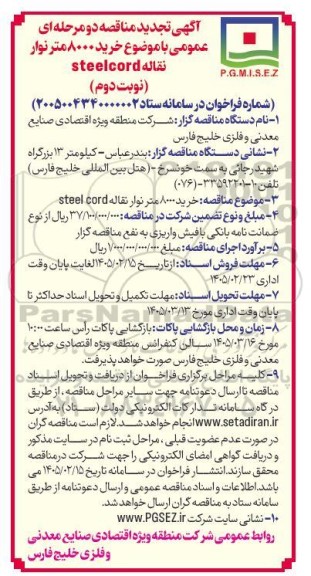 آگهی تجدید مناقصه دو مرحله ای
عمومی با موضوع خرید ۸۰۰۰ متر نوار
نقاله steelcord
(نوبت دوم)
P.G.M.I.S.E.Z
(شماره فراخوان در سامانه ستاد ۲۰۰۵۰۰۴۳۴۰۰۰۰۰۰۲)
۱- نام دستگاه مناقصه گزار: شرکت منطقه ویژه اقتصادی صنایع
معدنی و فلزی خلیج فارس
۲- نشانی دستگاه مناقصه گزار: بندرعباس- کیلومتر ۱۳ بزرگراه
شهید رجائی به سمت خونسرخ - (هتل بین المللی خلیج فارس)
تلفن ۱۰-۳۳۵۹۲۲۰۱ (۰۷۶)
۳- موضوع مناقصه: خرید ۸۰۰۰ متر نوار نقاله steel cord
۴- مبلغ و نوع تضمین شرکت در مناقصه: ۳۷/۱۰۰/۰۰۰/۰۰۰ ریال از نوع
ضمانت نامه بانکی یا فیش واریزی به نفع مناقصه گزار
۵- برآورد اجرای مناقصه: مبلغ ریال
۶- مهلت فروش اسناد: از تاریخ ۱۴۰۵/۰۲/۱۵ لغایت پایان وقت
اداری ۱۴۰۵/۰۲/۲۳
۷- مهلت تحویل اسناد: مهلت تکمیل و تحویل اسناد حداکثر تا
پایان وقت اداری مورخ ۱۴۰۵/۰۳/۱۳
۸- زمان و محل بازگشایی پاکات: بازگشایی پاکات رأس ساعت ۱۰:۰۰
مورخ ۱۴۰۵/۰۳/۱۶ سالن کنفرانس منطقه ویژه اقتصادی صنایع
معدنی و فلزی خلیج فارس صورت خواهد پذیرفت.
۹- کلیه مراحل برگزاری فراخوان از دریافت و تحویل اسناد
مناقصه تا ارسال دعوتنامه جهت سایر مراحل مناقصه، از طریق
درگاه سامانه تدارکات الکترونیکی دولت (ستاد) به آدرس
www.setadiran.ir انجام خواهد شد. لازم است مناقصه گران
در صورت عدم عضویت قبلی، مراحل ثبت نام در سایت مذکور
و دریافت گواهی امضای الکترونیکی را جهت شرکت در مناقصه
محقق سازند. انتشار فراخوان در سامانه تاریخ ۱۴۰۵/۰۲/۱۵ می
باشد. اطلاعات و اسناد مناقصه عمومی و ارسال دعوتنامه از طریق
سامانه ستاد به مناقصه گران ارسال خواهد شد.
۱۰- نشانی سایت شرکت www.PGSEZ.ir
روابط عمومی شرکت منطقه ویژه اقتصادی صنایع معدنی
و فلزی خلیج فارس